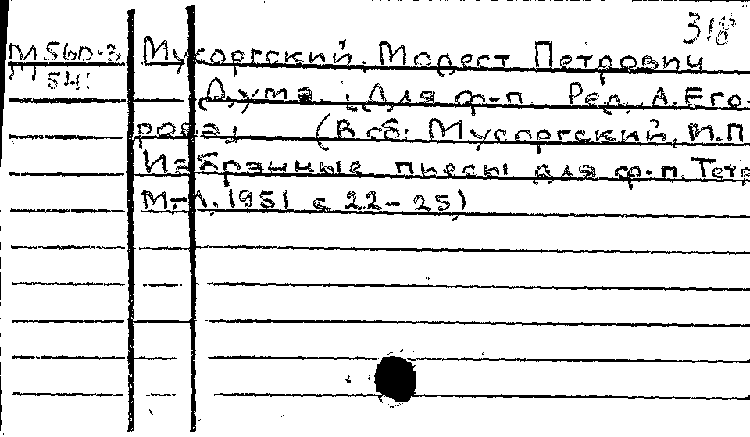 318
М 560.3 Мусоргский, Модест Петрович
541
Дума. [Для ф-п. Ред. А. Его-
рова] (В сб: Мусоргский, М.П.
Избранные пиесы для ф.п. Тетр
М-Л. 1951 с 22-25)